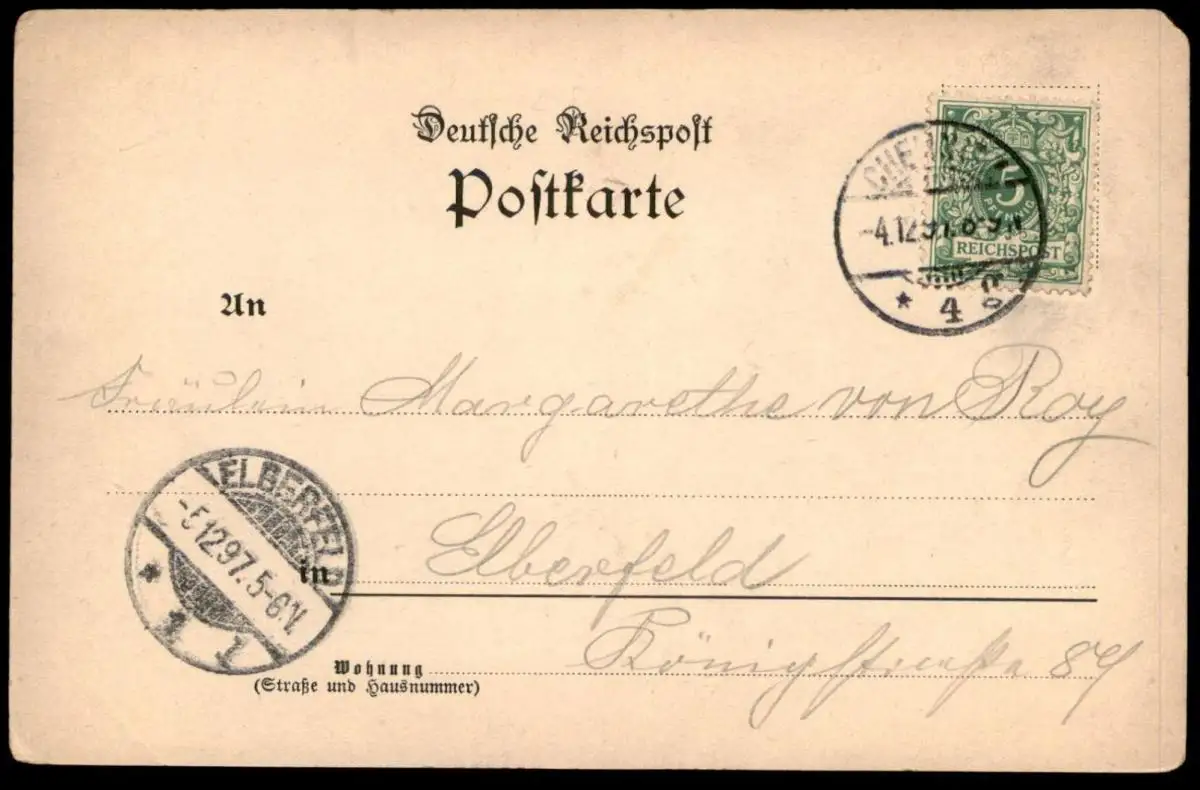 Deutsche Reichspost
Postkarte
5
PFENNIG
REICHSPOST
-4.12.97. 8-9N
* 4
An
Fräulein Margarethe von Roy
ELBERFELD
-5.12.97. 5-6V.
* 1 1
in Elberfeld
Wohnung Königstraße 89
(Straße und Hausnummer)